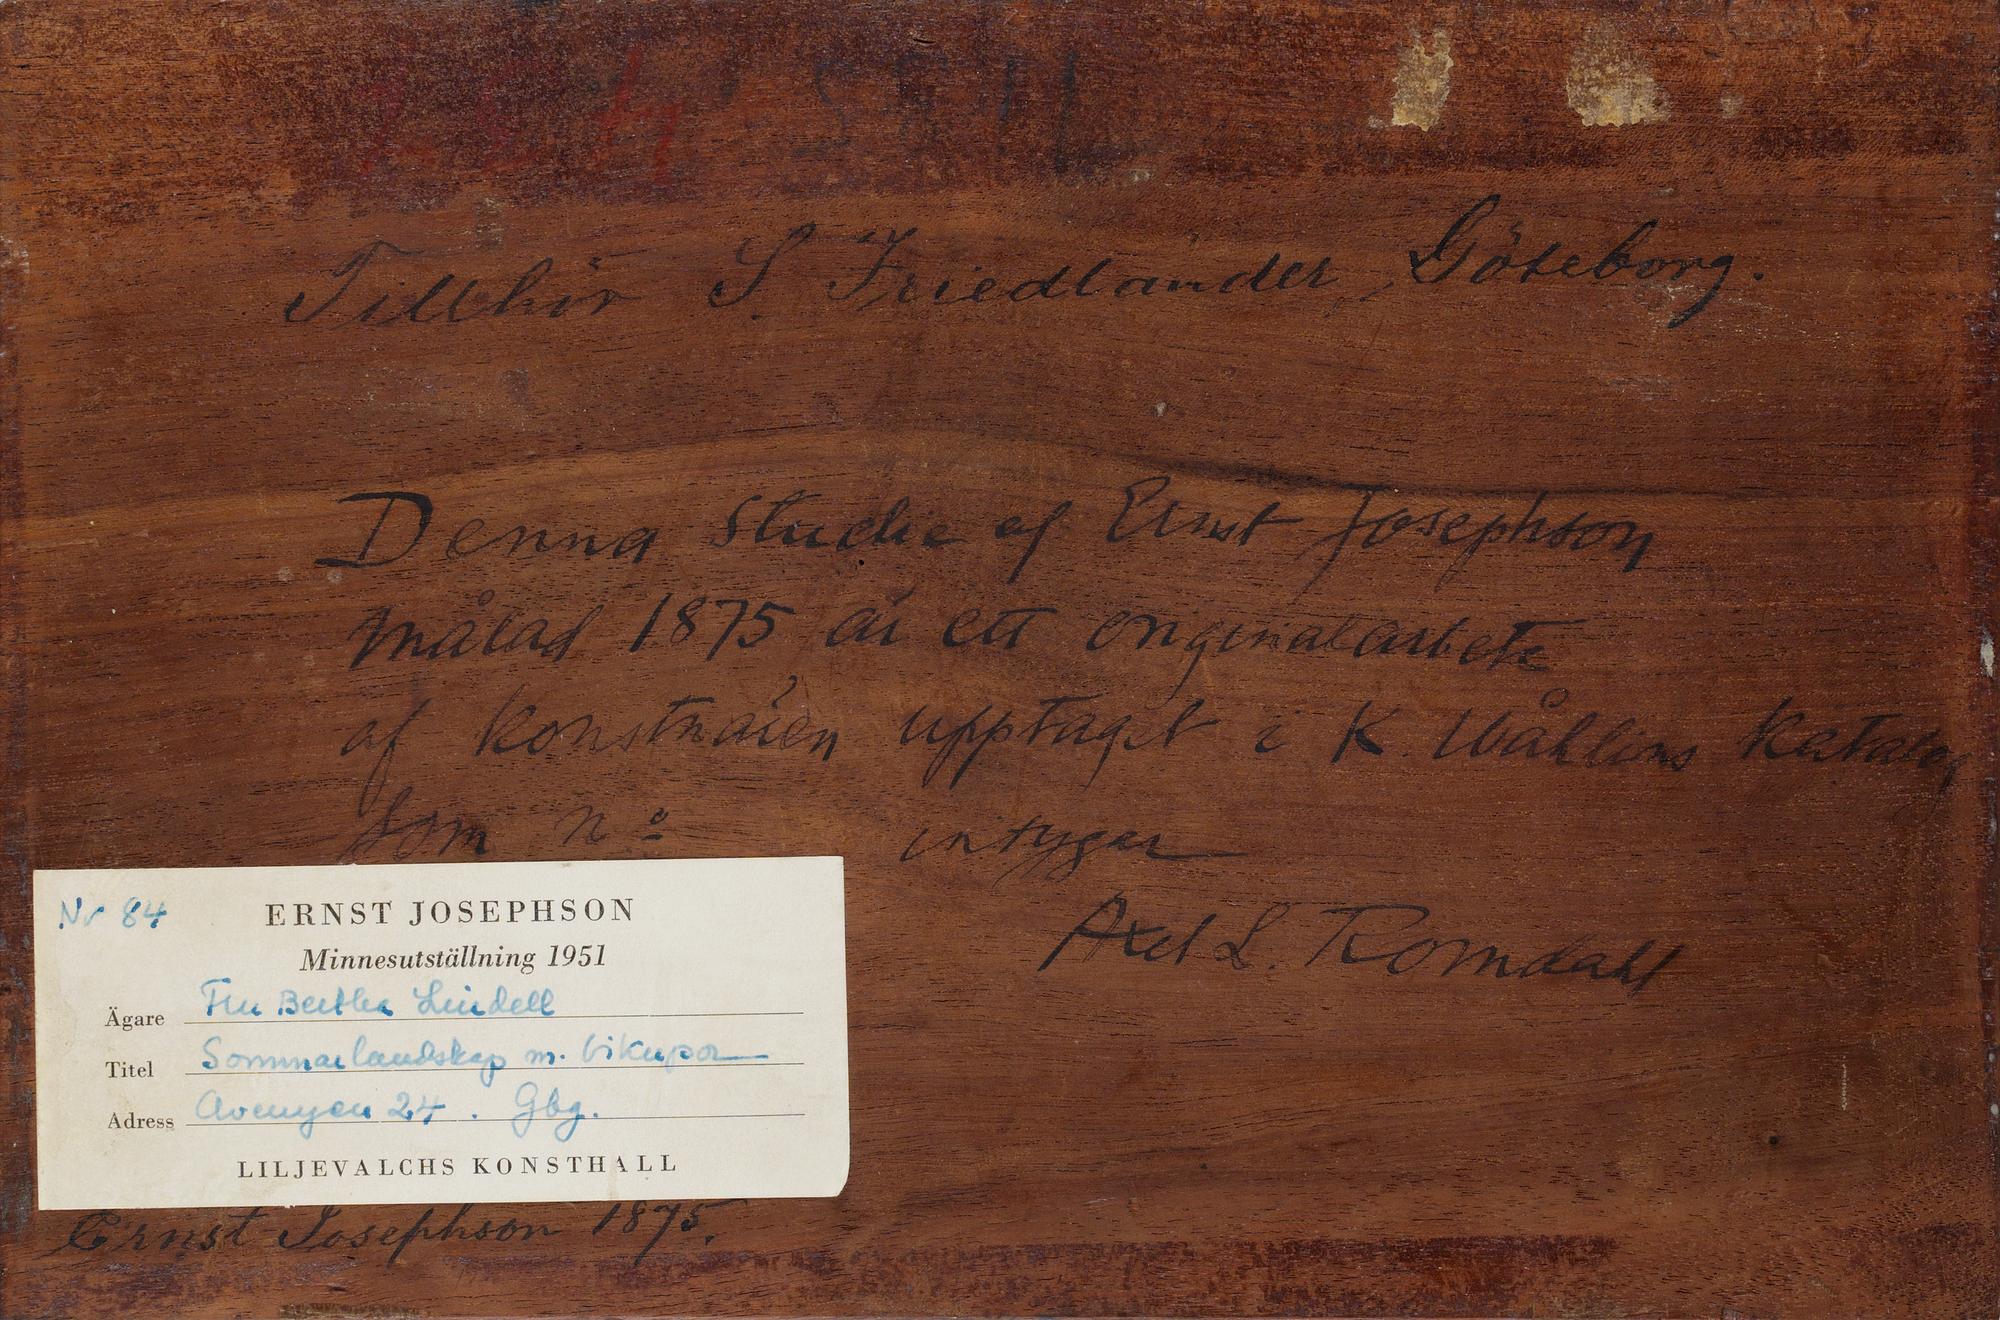 Tillhör S. Friedländer, Göteborg.
Denna studie af Ernst Josephson
målad 1875 är ett originalarbete
af konstnären upptaget i K. Wåhlins katalog
som nº intygar
Axel L. Romdahl
Nr 84
ERNST JOSEPHSON
Minnesutställning 1951
Ägare Fru Bertha Lindell
Titel Sommarlandskap m. bikupor
Adress Avenyen 24. Gbg.
LILJEVALCHS KONSTHALL
Ernst Josephson 1875.